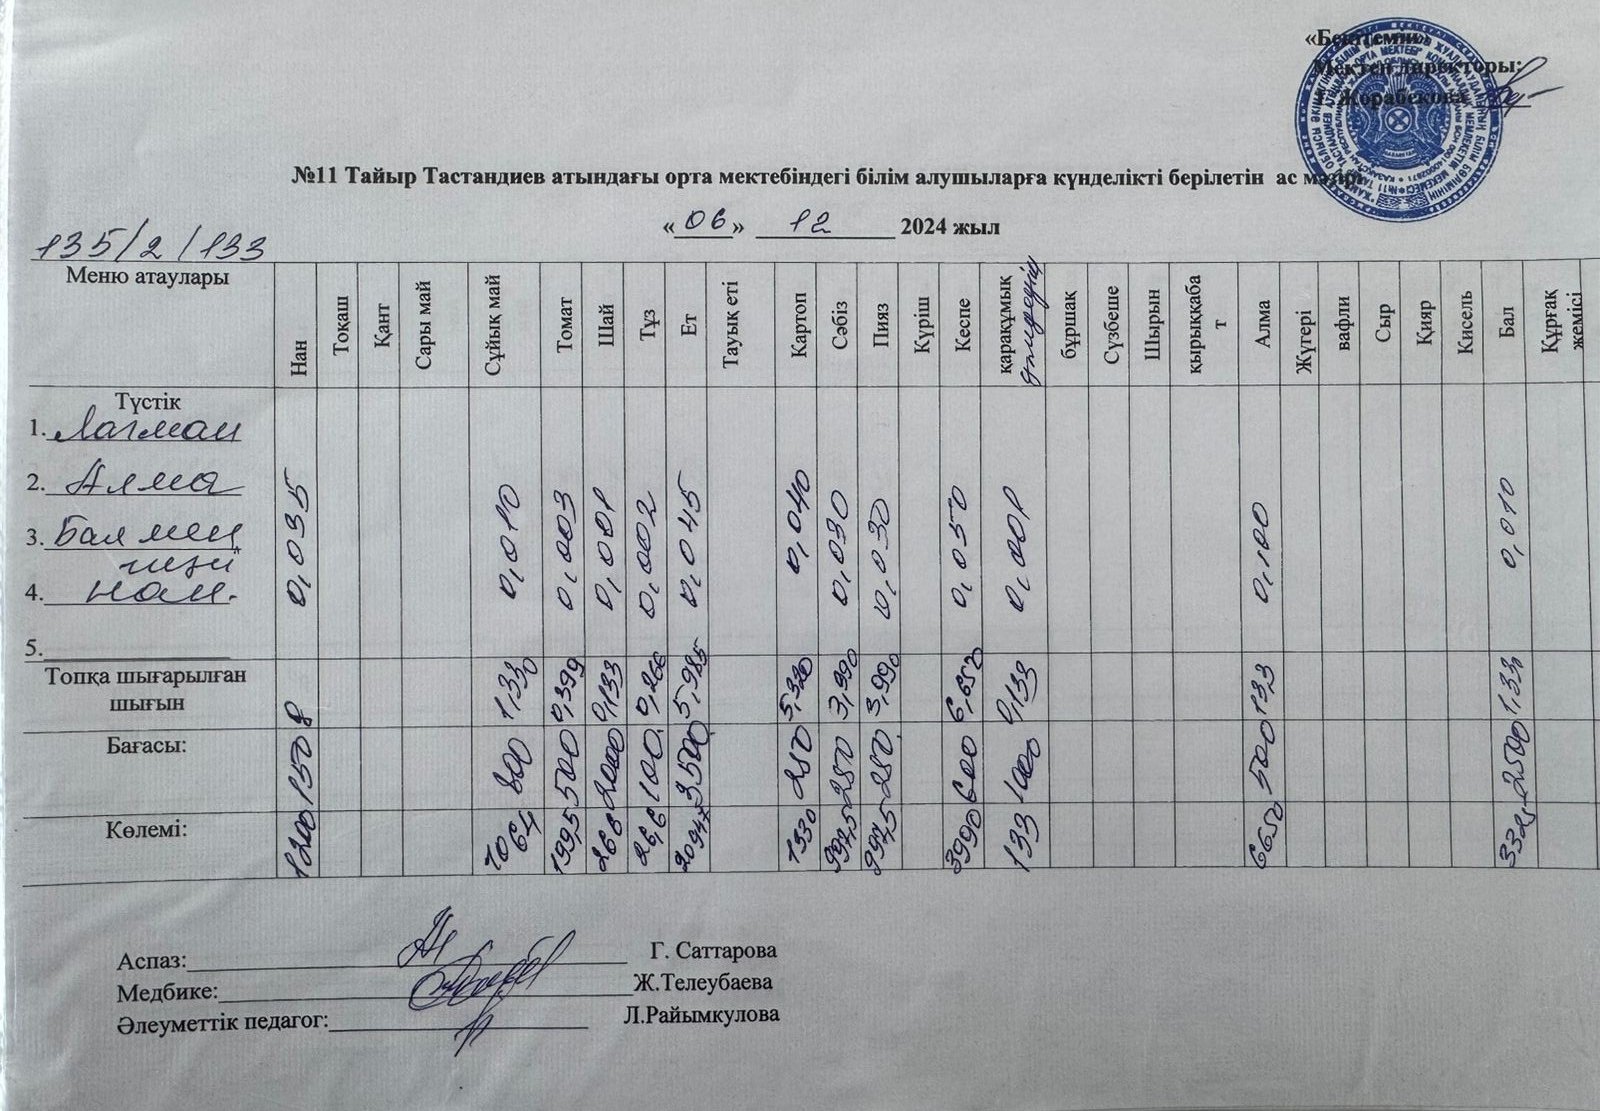 «Бекітемін»
Мектеп директоры:
Жорабекова
№11 Тайыр Тастандиев атындағы орта мектебіндегі білім алушыларға күнделікті берілетін ас мәзірі
«06» 12 2024 жыл
135/2/133
Меню атаулары Нан Тоқаш Қант Сары май Сұйық май Томат Шай Тұз Ет Тауық еті Картоп Сәбіз Пияз Күріш Кеспе қарақұмық бұршақ Сүзбеше Шырын қырыққабат Алма Жүгері вафли Сыр Қияр Кисель Бал Құрғақ жемісі
Түстік
1. Лагман
2. Алма
3. Бал мен
шәй
4. нан.
5.
0,035 0,010 0,003 0,001 0,002 0,045 0,040 0,030 0,030 0,050 0,001 0,100 0,010
Топқа шығарылған шығын 8 1,330 0,399 0,133 0,266 5,985 5,320 3,990 3,990 6,650 0,133 13,3 1,33
Бағасы: 150 800 500 2000 100 3500 250 250 250 600 1000 500 2500
Көлемі: 1200 1064 199,5 266 26,6 20947 1330 997,5 997,5 3990 133 6650 3325
Аспаз: Г. Саттарова
Медбике: Ж.Телеубаева
Әлеуметтік педагог: Л.Райымкулова